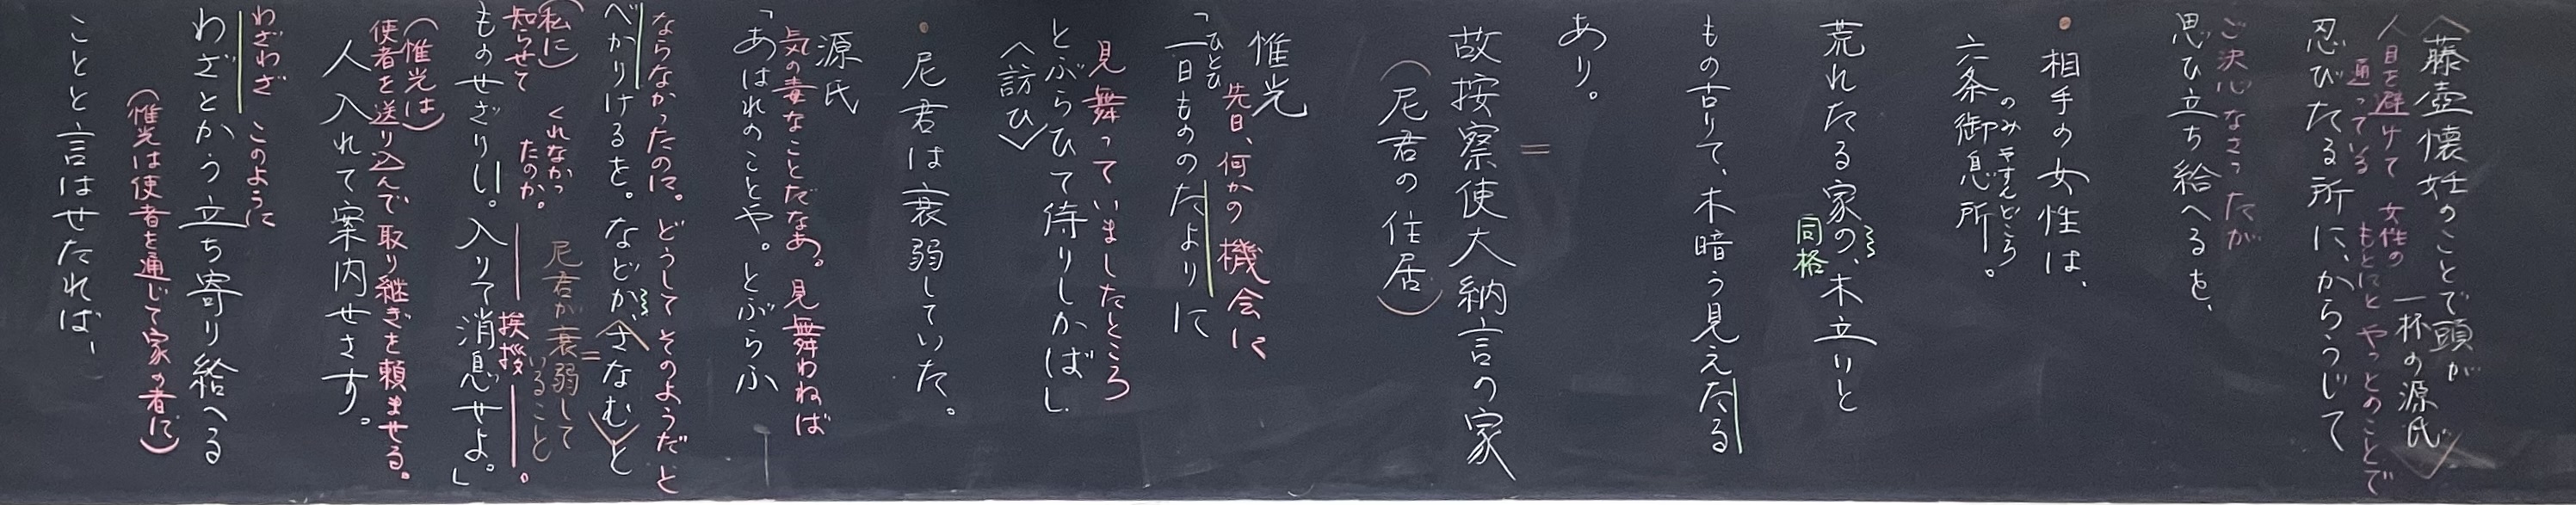 〈藤壺懐妊のことで頭が
一杯の源氏〉
人目を避けて 女性の
通っている もとにと やっとのことで
忍びたる所に、からうじて
ご決心なさったが
思ひ立ち給へるを、
・相手の女性は、
のみやすんどころ
六条御息所。
荒れたる家の、木立いと
同格
もの古りて、木暗う見えたる
あり。
＝
故按察使大納言の家
（尼君の住居）
惟光
先日、何かの機会に
ひとひ
「一日もののたよりに
見舞っていましたところ
とぶらひて侍りしかばし
〈訪ひ〉
・尼君は衰弱していた。
源氏
気の毒なことだなあ。見舞わねば
「あはれのことや。とぶらふ
ならなかったのに。どうして そのようだと
べかりけるを。などか、さなむと
＝
尼君が衰弱して
いること
（私に）
知らせて くれなかっ
たのか。 挨拶 。
ものせざりし。入りて消息せよ。」
（惟光は）
使者を送り込んで取り継ぎを頼ませる。
人入れて案内せさす。
わざわざ このように
わざとかう立ち寄り給へる
（惟光は使者を通じて家の者に）
ことと言はせたれば、